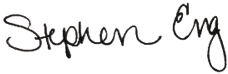 Stephen Eng